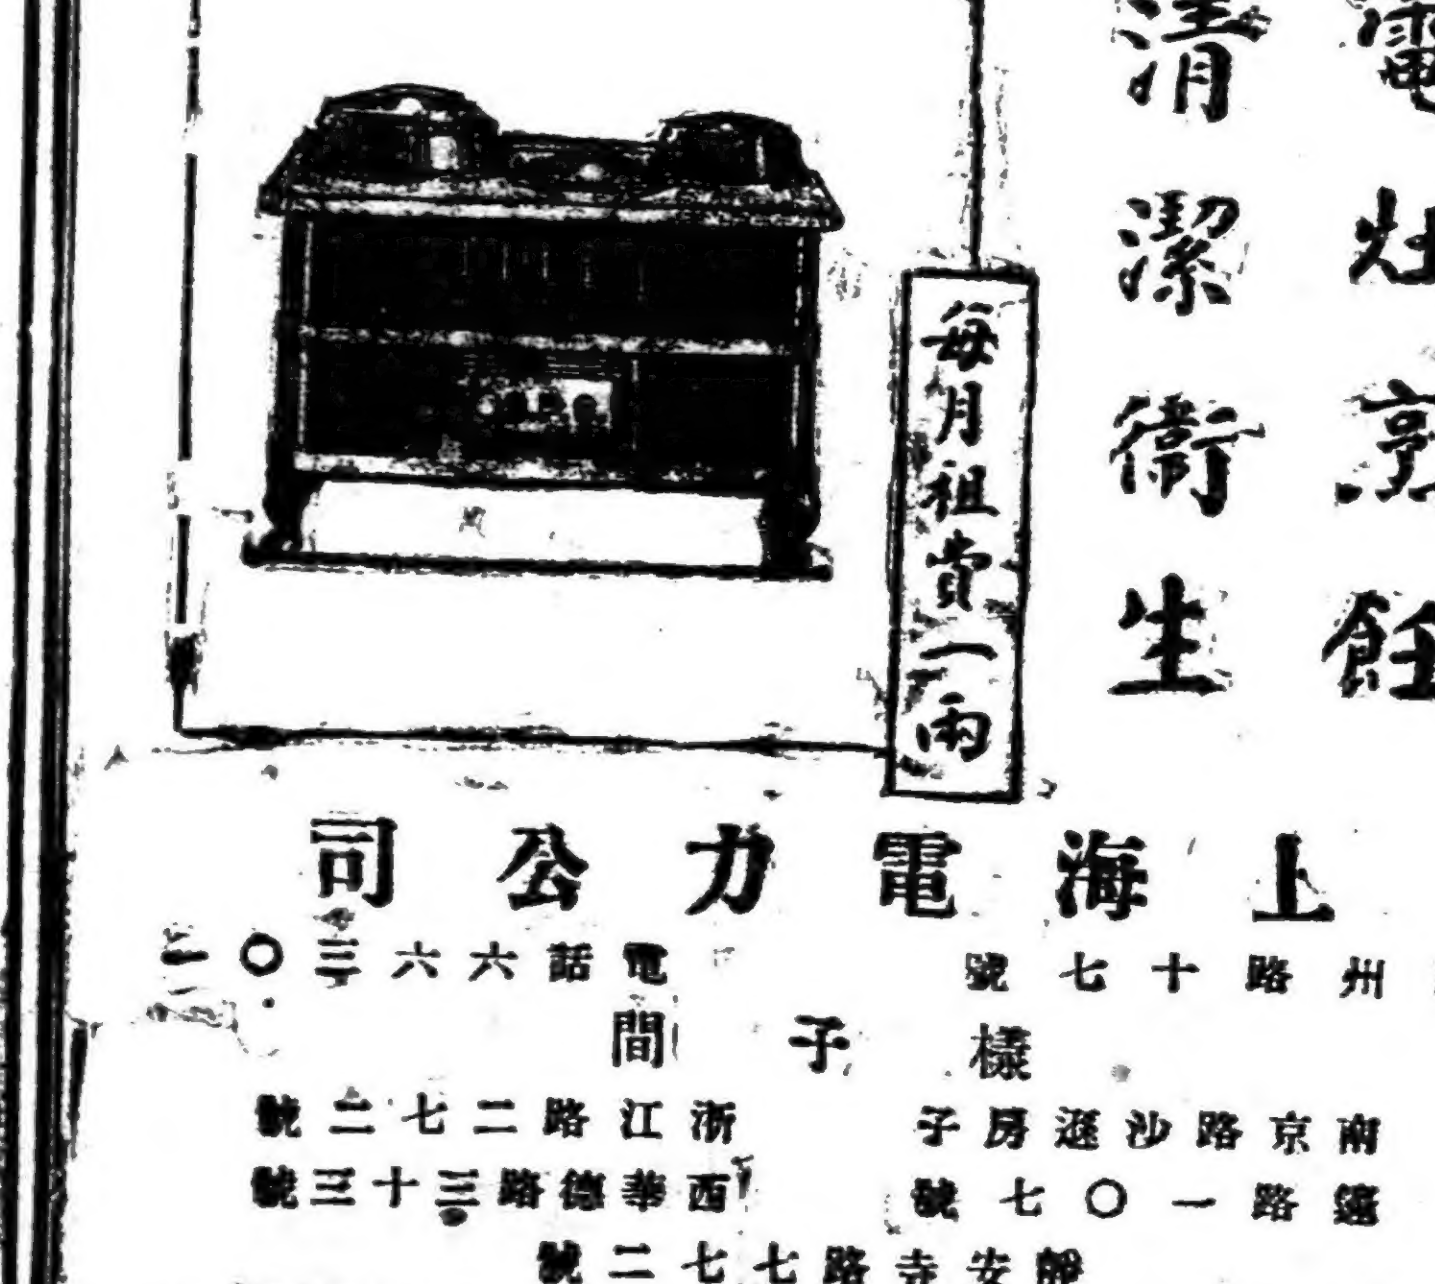 電灶烹飪
清潔衛生
每月租費一兩
上海電力公司
州路十七號
電話六六三〇二
樣子間
南京路沙遜房子
浙江路二七二號
路一〇七號
西華德路三十三號
靜安寺路七七二號